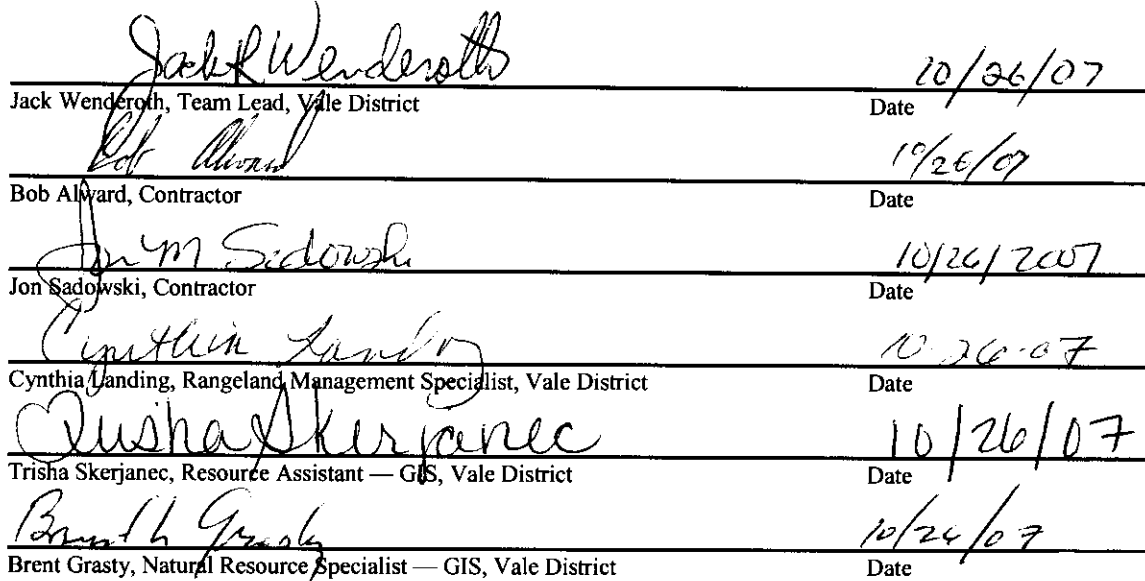 Jack R Wenderoth 10/26/07
Jack Wenderoth, Team Lead, Vale District Date
Bob Alward 10/26/07
Bob Alward, Contractor Date
Jon M Sadowski 10/26/2007
Jon Sadowski, Contractor Date
Cynthia Landing 10-26-07
Cynthia Landing, Rangeland Management Specialist, Vale District Date
Trisha Skerjanec 10/26/07
Trisha Skerjanec, Resource Assistant — GIS, Vale District Date
Brent Grasty 10/26/07
Brent Grasty, Natural Resource Specialist — GIS, Vale District Date